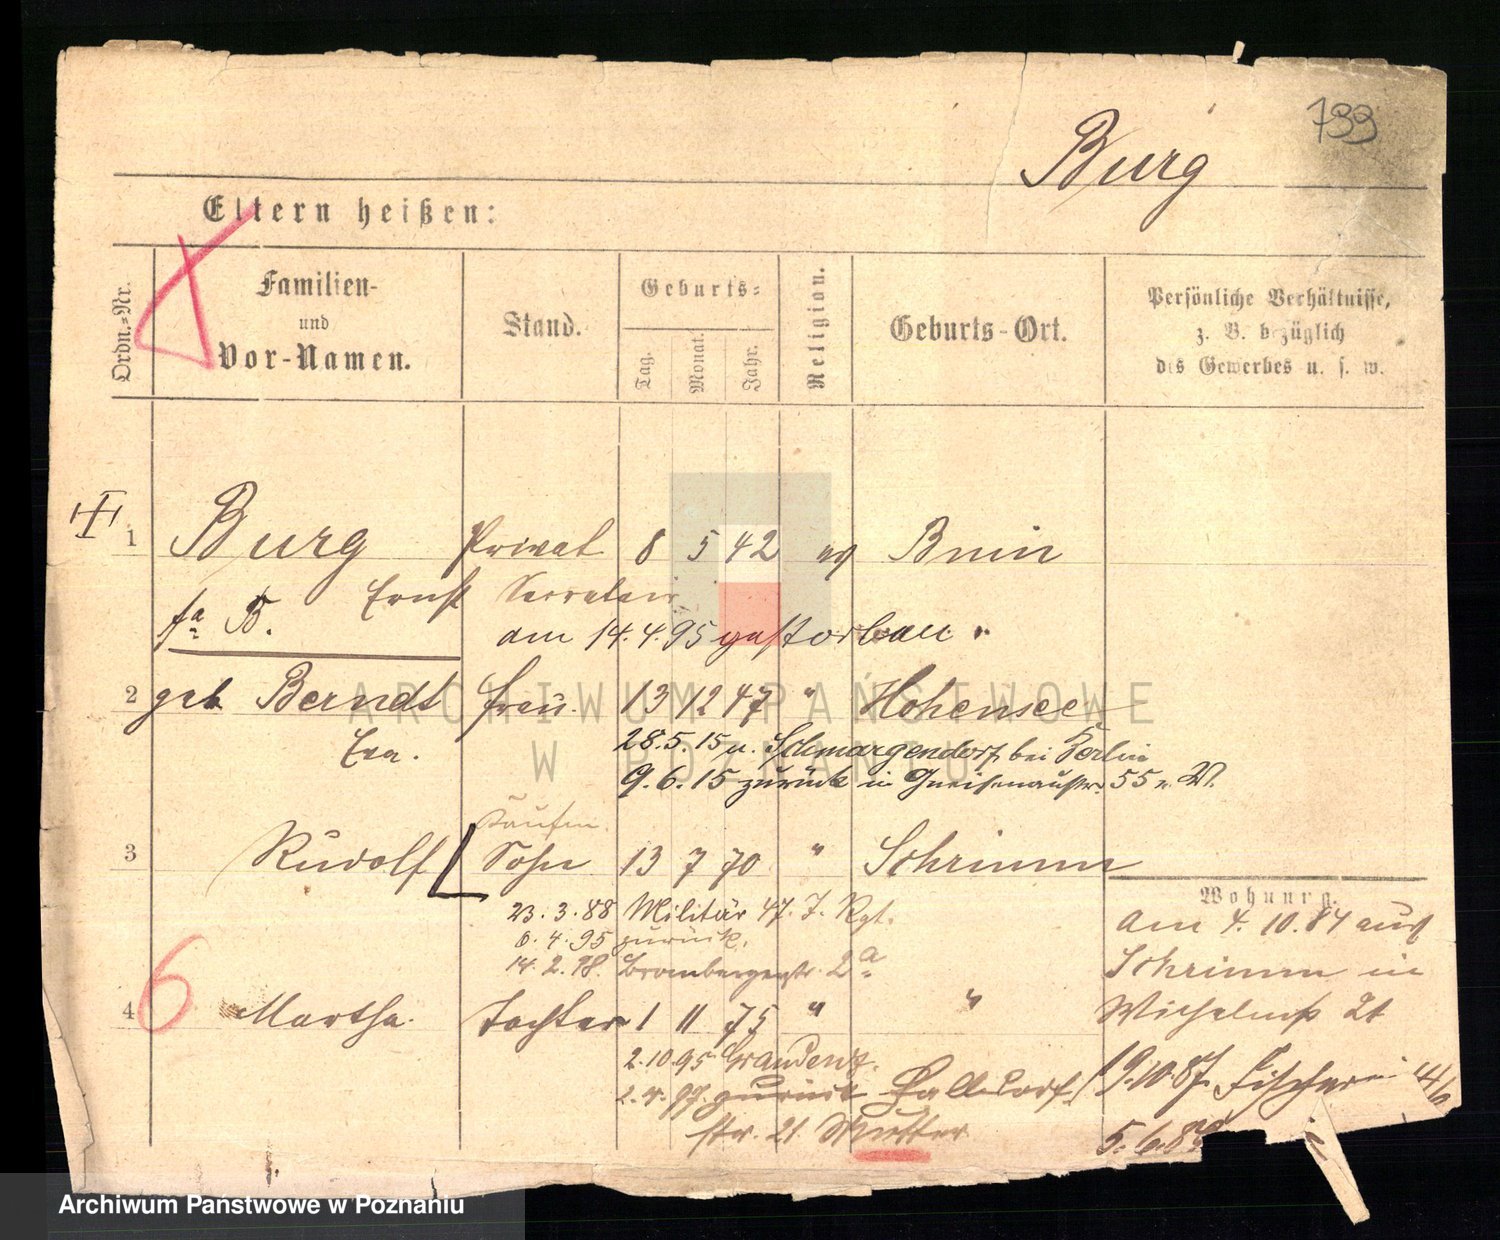 799
Burg
Eltern heißen:
Ordn.-Nr.
Familien-
und
Vor-Namen.
Stand.
Geburts-
Tag.
Monat.
Jahr.
Religion.
Geburts-Ort.
Persönliche Verhältnisse,
z. B. bezüglich
des Gewerbes u. s. w.
1 Burg Privat 8 5 42 ev Bnin
Ernst Secretair
fa B.
am 14.4.95 gestorben.
2 geb Berndt Frau 13 12 47 " Hohensee
Eva.
28.5.15 n. Schmargendorf bei Berlin
9.6.15 zurück in Gneisenaustr. 55 b. W.
Kaufm.
3 Rudolf Sohn 13 7 70 " Schrimm
23.3.88 Militär 47. I. Rgt.
6.4.95 zurück.
14.2.98. Brombergerstr. 2a
Wohnung.
am 4.10.84 aus
Schrimm in
Wilhelmstr 21
19.10.87. Fischerei 4/6
5.6.89
6
4 Martha. Tochter 1 11 75 " "
2.10.95 Graudenz.
2.4.97. zurück
str. 21 Mutter
ARCHIWUM PAŃSTWOWE
W POZNANIU
Archiwum Państwowe w Poznaniu